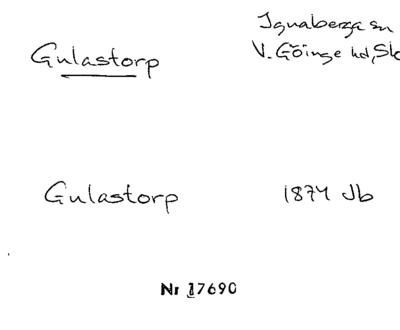 Gulastorp
Ignaberga sn
V. Göinge hd,
Gulastorp
1874 Jb
Nr 17690